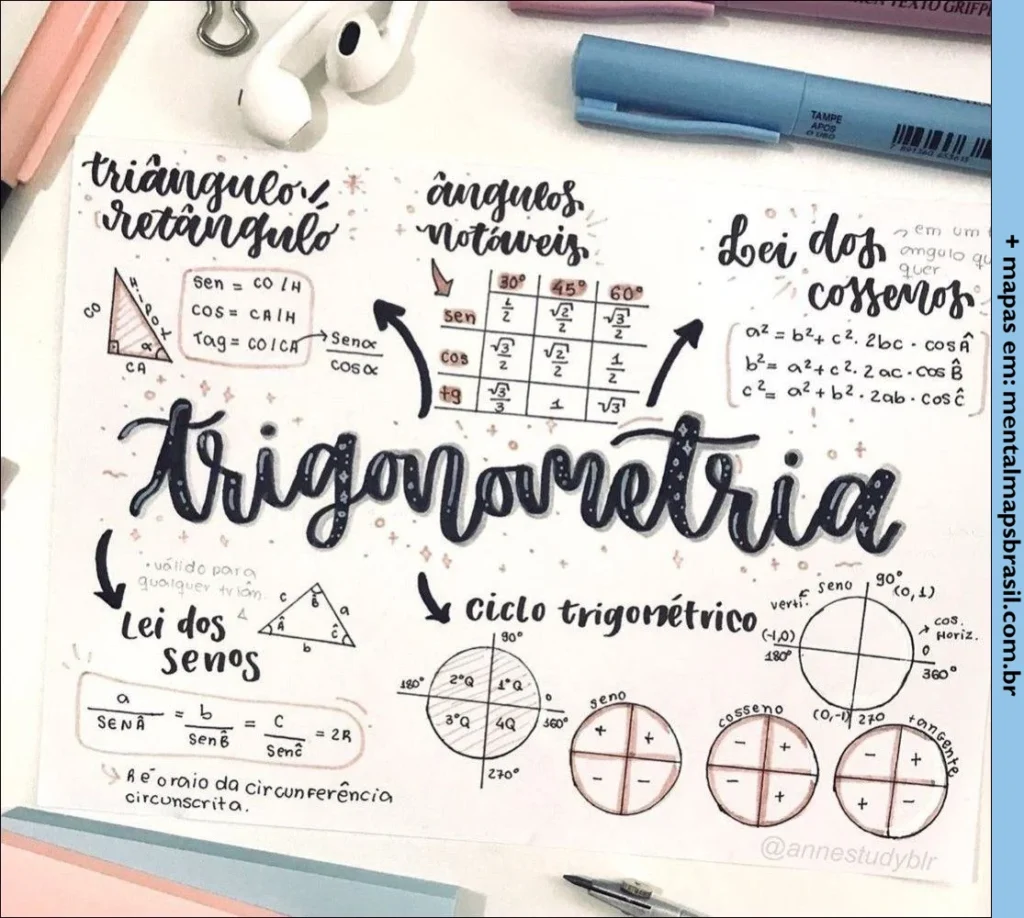 TEXTO GRIFP
TAMPE
APOS
O USO
triângulo
retângulo
CO
Hipot
α
CA
sen = CO/H
COS = CA/H
Tag = CO/CA → Senα
cosα
ângulos
notáveis
30° 45° 60°
sen 1/2 √2/2 √3/2
cos √3/2 √2/2 1/2
tg √3/3 1 √3
Lei dos
cossenos
em um
angulo qu
quer
a² = b² + c² . 2bc . cos Â
b² = a² + c² . 2ac . cos B̂
c² = a² + b² . 2ab . cos Ĉ
trigonometria
• válido para
qualquer triân.
Lei dos
senos
c B̂ a
Â Ĉ
b
a/SENÂ = b/SenB̂ = c/Senĉ = 2R
R é o raio da circunferência
circunscrita.
ciclo trigométrico
90°
180° 2°Q 1°Q 0
3°Q 4Q 360°
270°
seno
+ +
- -
cosseno
- +
- +
tangente
- +
+ -
seno 90°
verti. (0,1)
(-1,0) cos.
Horiz.
180° 0
360°
(0,-1) 270
@annestudyblr
+ mapas em: mentalmapsbrasil.com.br